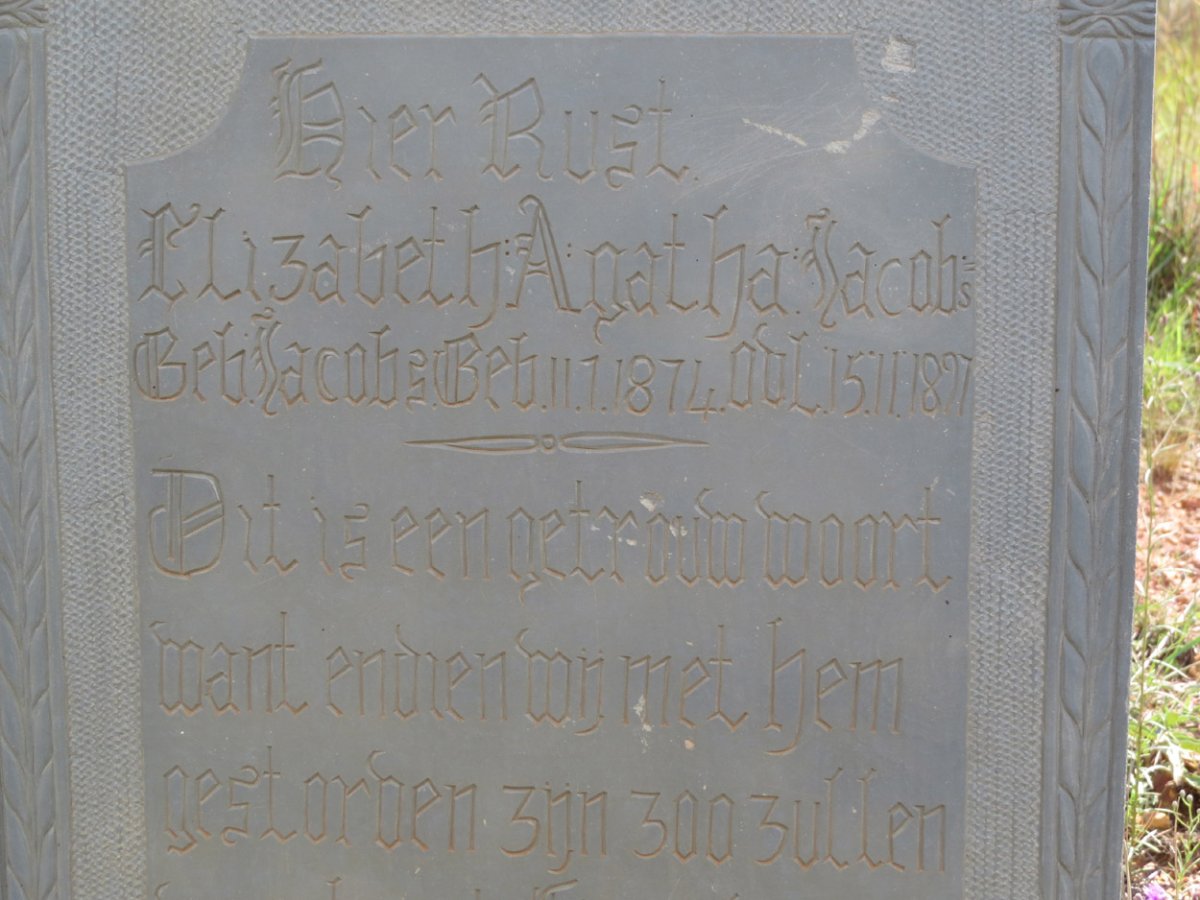 Hier Rust.
Elizabeth:Agatha:Jacobs
Geb:Jacobs.Geb.11.1.1874.Odl.15.11.1897
Dit is een getrouw woort
want endien wij met hem
gestorden zijn zoo zullen